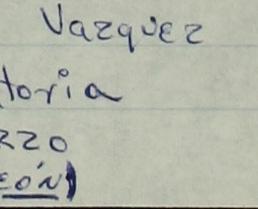 Vazquez
toria
220
EÓN)